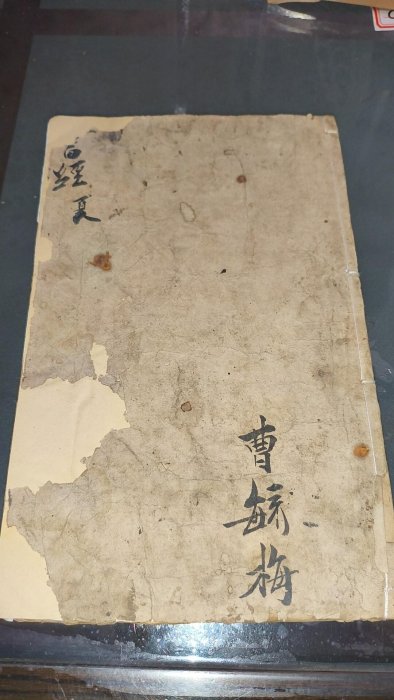 經
夏
曹
毓
梅